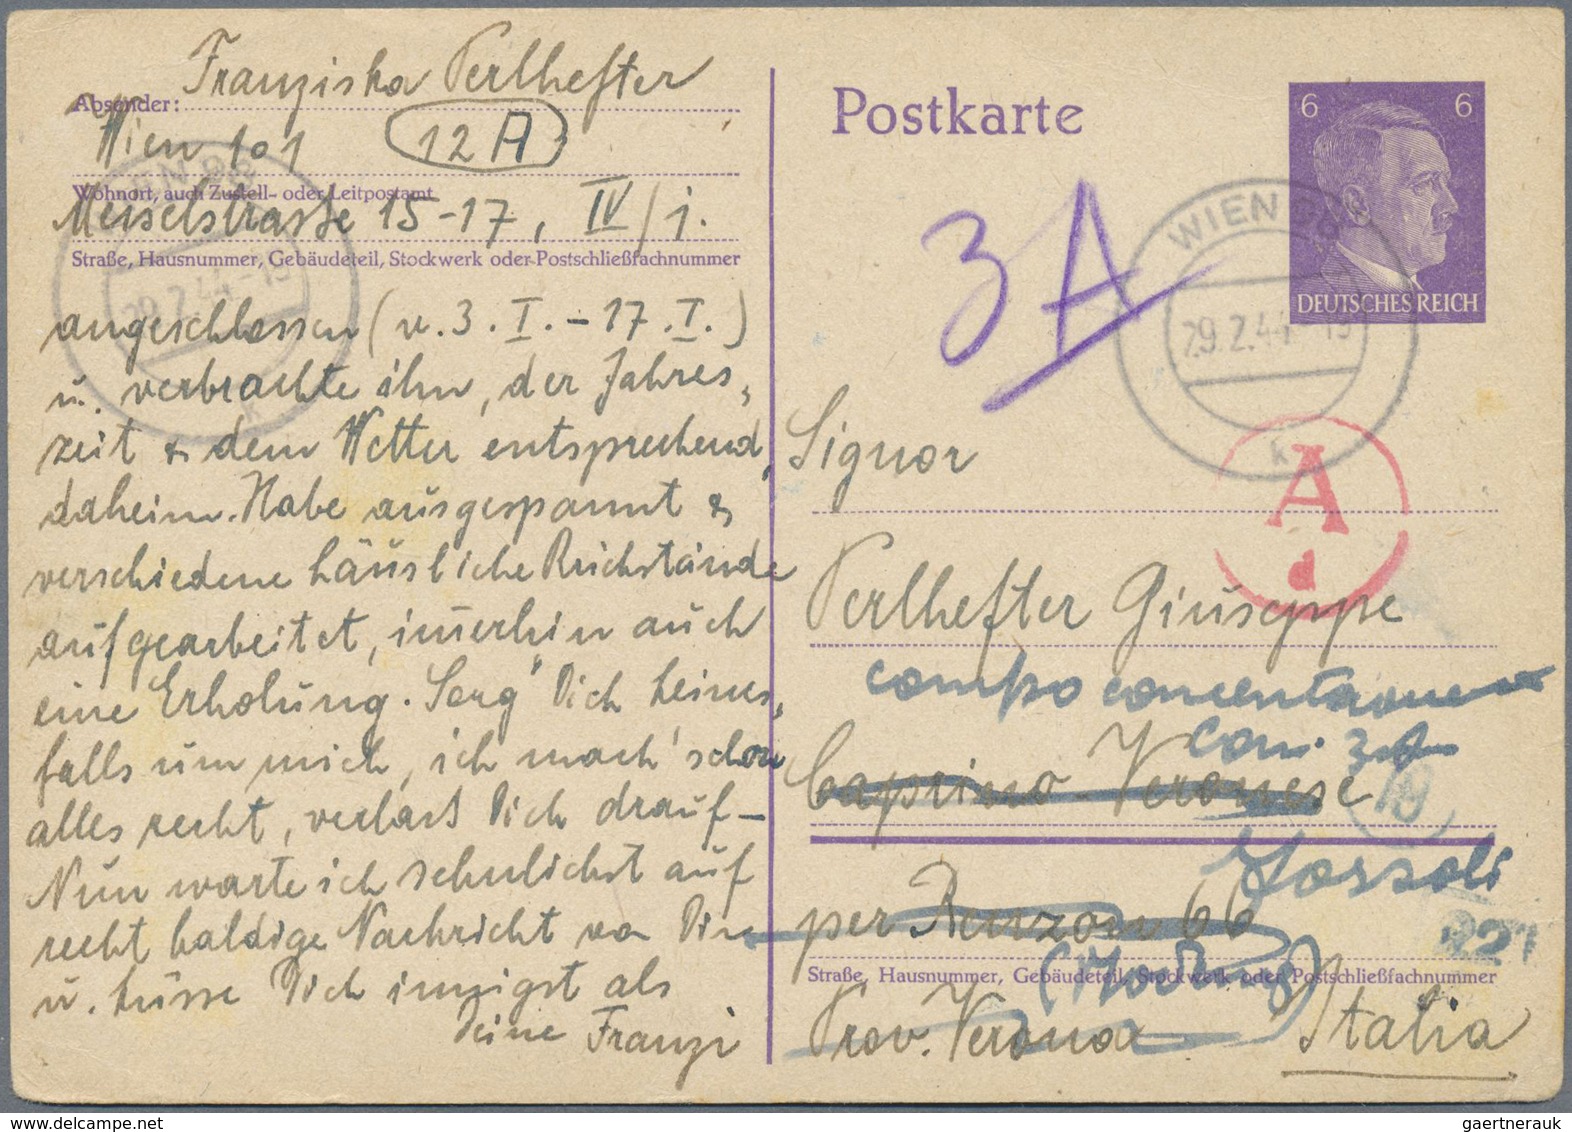 Franziska Perlhefter
Absender:
Wien 101 12A
Wohnort, auch Zustell- oder Leitpostamt
Meiselstrasse 15-17, IV/1.
Straße, Hausnummer, Gebäudeteil, Stockwerk oder Postschließfachnummer
angeschlossen (v. 3. I. - 17. I.)
u. verbrachte ihn, der Jahres=
zeit & dem Wetter entsprechend,
daheim. Habe ausgespannt &
verschiedene häusliche Rückstände
aufgearbeitet, im̅erhin auch
eine Erholung. Sorg' Dich keines=
falls um mich, ich mach' schon
alles recht, verlass Dich drauf -
Nun warte ich sehnlichst auf
recht baldige Nachricht von Dir
u. küsse Dich innigst als
Deine Franzi
Postkarte
6 6
DEUTSCHES REICH
WIEN
29.2.44
k
3A
A
d
Signor
Perlhefter Giuseppe
campo concentramento
Caprino-Veronese
19
Fossoli
per Renzon 66
221
Straße, Hausnummer, Gebäudeteil, Stockwerk oder Postschließfachnummer
(Modena)
Prov. Verona Italia
gaertnerauk @ delcampe.net